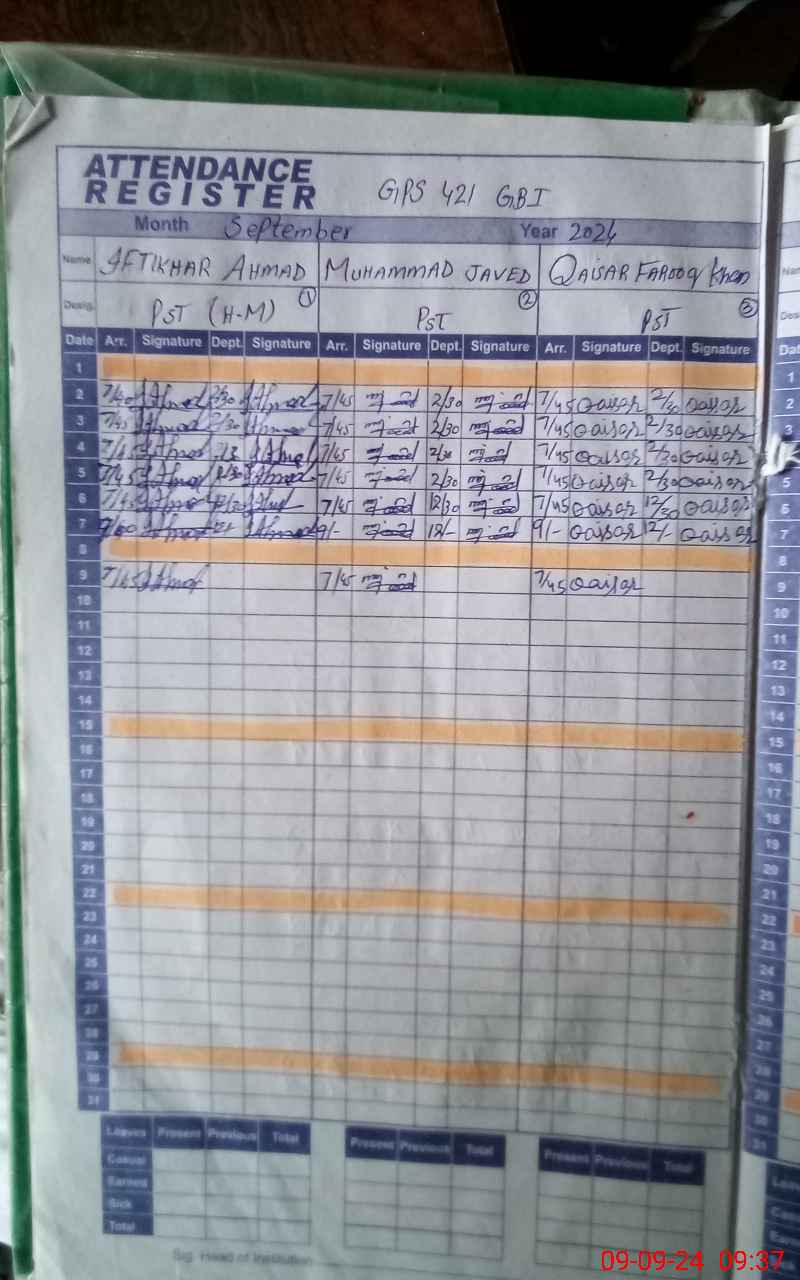 ATTENDANCE
REGISTER GPS 421 GBI
Month September Year 2024
Name IFTIKHAR AHMAD MUHAMMAD JAVED QAISAR FAROOQ Khan
Desig. PST (H-M) ① PST ② PST ③
Date Arr. Signature Dept. Signature Arr. Signature Dept. Signature Arr. Signature Dept. Signature Dat
1 1
2 7/45 2/30 7/45 Qaisar 2/30 Qaisar 2
3 7/45 2/30 7/45 Qaisar 2/30 Qaisar 3
4 7/45 2/30 7/45 Qaisar 2/30 Qaisar
5 7/45 7/45 2/30 7/45 Qaisar 2/30 Qaisar 5
6 7/45 12/30 7/45 12/30 7/45 Qaisar 12/30 Qaisar 6
7 9/- 12/- 9/- Qaisar 12/- Qaisar 7
8 8
9 7/45 7/45 7/45 Qaisar 9
10 10
11 11
12 12
13 13
14 14
15 15
16 16
17 17
18 18
19 19
20 20
21 21
22 22
23 23
24 24
25 25
26 26
27 27
28 28
29 29
30 30
31 31
Leaves Present Previous Total Present Previous Total Present Previous Total
Casual
Earned
Sick
Total
Sig. Head of Institution
09-09-24 09:37